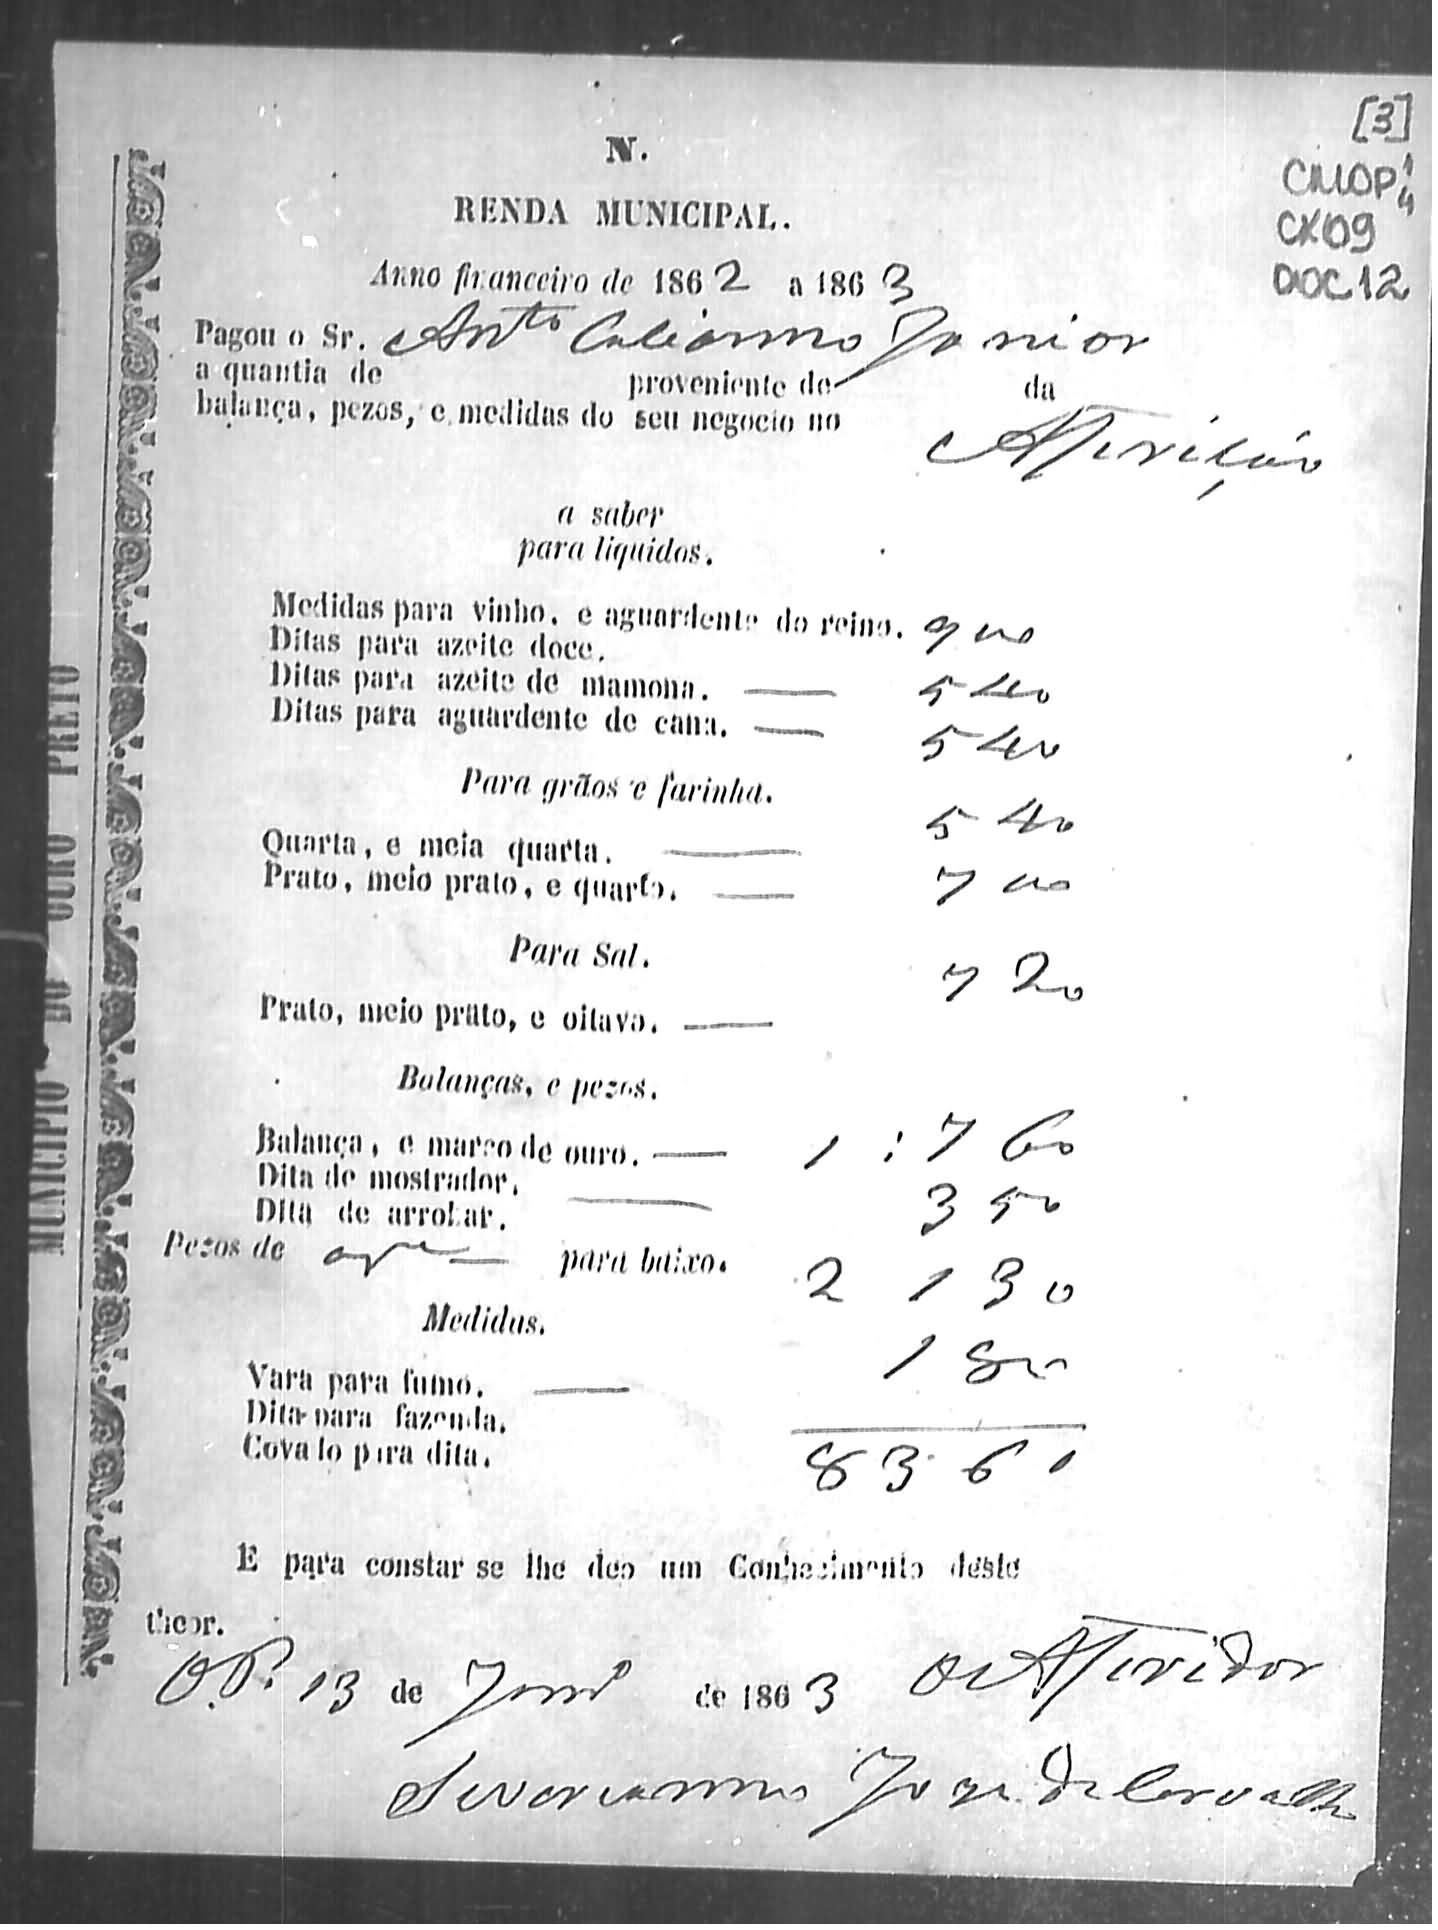 [3]
CMOP 1/4
CX09
DOC12
N.
RENDA MUNICIPAL.
Anno financeiro de 1862 a 1863
Pagou o Sr. Anto Junior
a quantia de proveniente de da
balança, pezos, e medidas do seu negocio no
Afferição
a saber
para liquidos.
Medidas para vinho, e aguardente do reino. 900
Ditas para azeite doce.
Ditas para azeite de mamona. — 540
Ditas para aguardente de cana. — 540
Para grãos e farinha.
540
Quarta, e meia quarta. —
Prato, meio prato, e quarto. — 700
Para Sal.
720
Prato, meio prato, e oitava. —
Balanças, e pezos.
Balança, e marco de ouro. — 1:760
Dita de mostrador. — 350
Dita de arrobar.
Pezos de — para baixo. 2130
Medidas.
180
Vara para fumo. —
Dita para fazenda.
Covado para dita. 8360
E para constar se lhe deo um Conhecimento deste
theor.
O.P. 13 de de 1863 O Afferidor
Severianno Joze de Carvalho
MUNICIPIO DO OURO PRETO